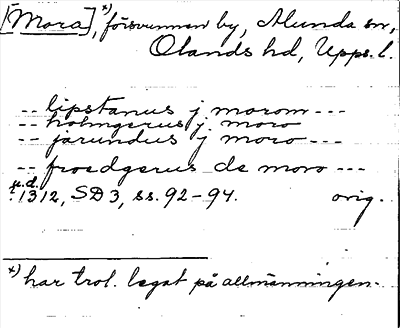 [Mora],*) försvunnen by, Alunda sn,
Olands hd, Upps. l.
-- lipstanus j morom ---
-- holmgerus j moro
-- jarundus j moro ---
-- froedgerus de moro ---
u.d.
: 1312, SD 3, ss. 92-94. orig.
*) har trol. legat på allmänningen.